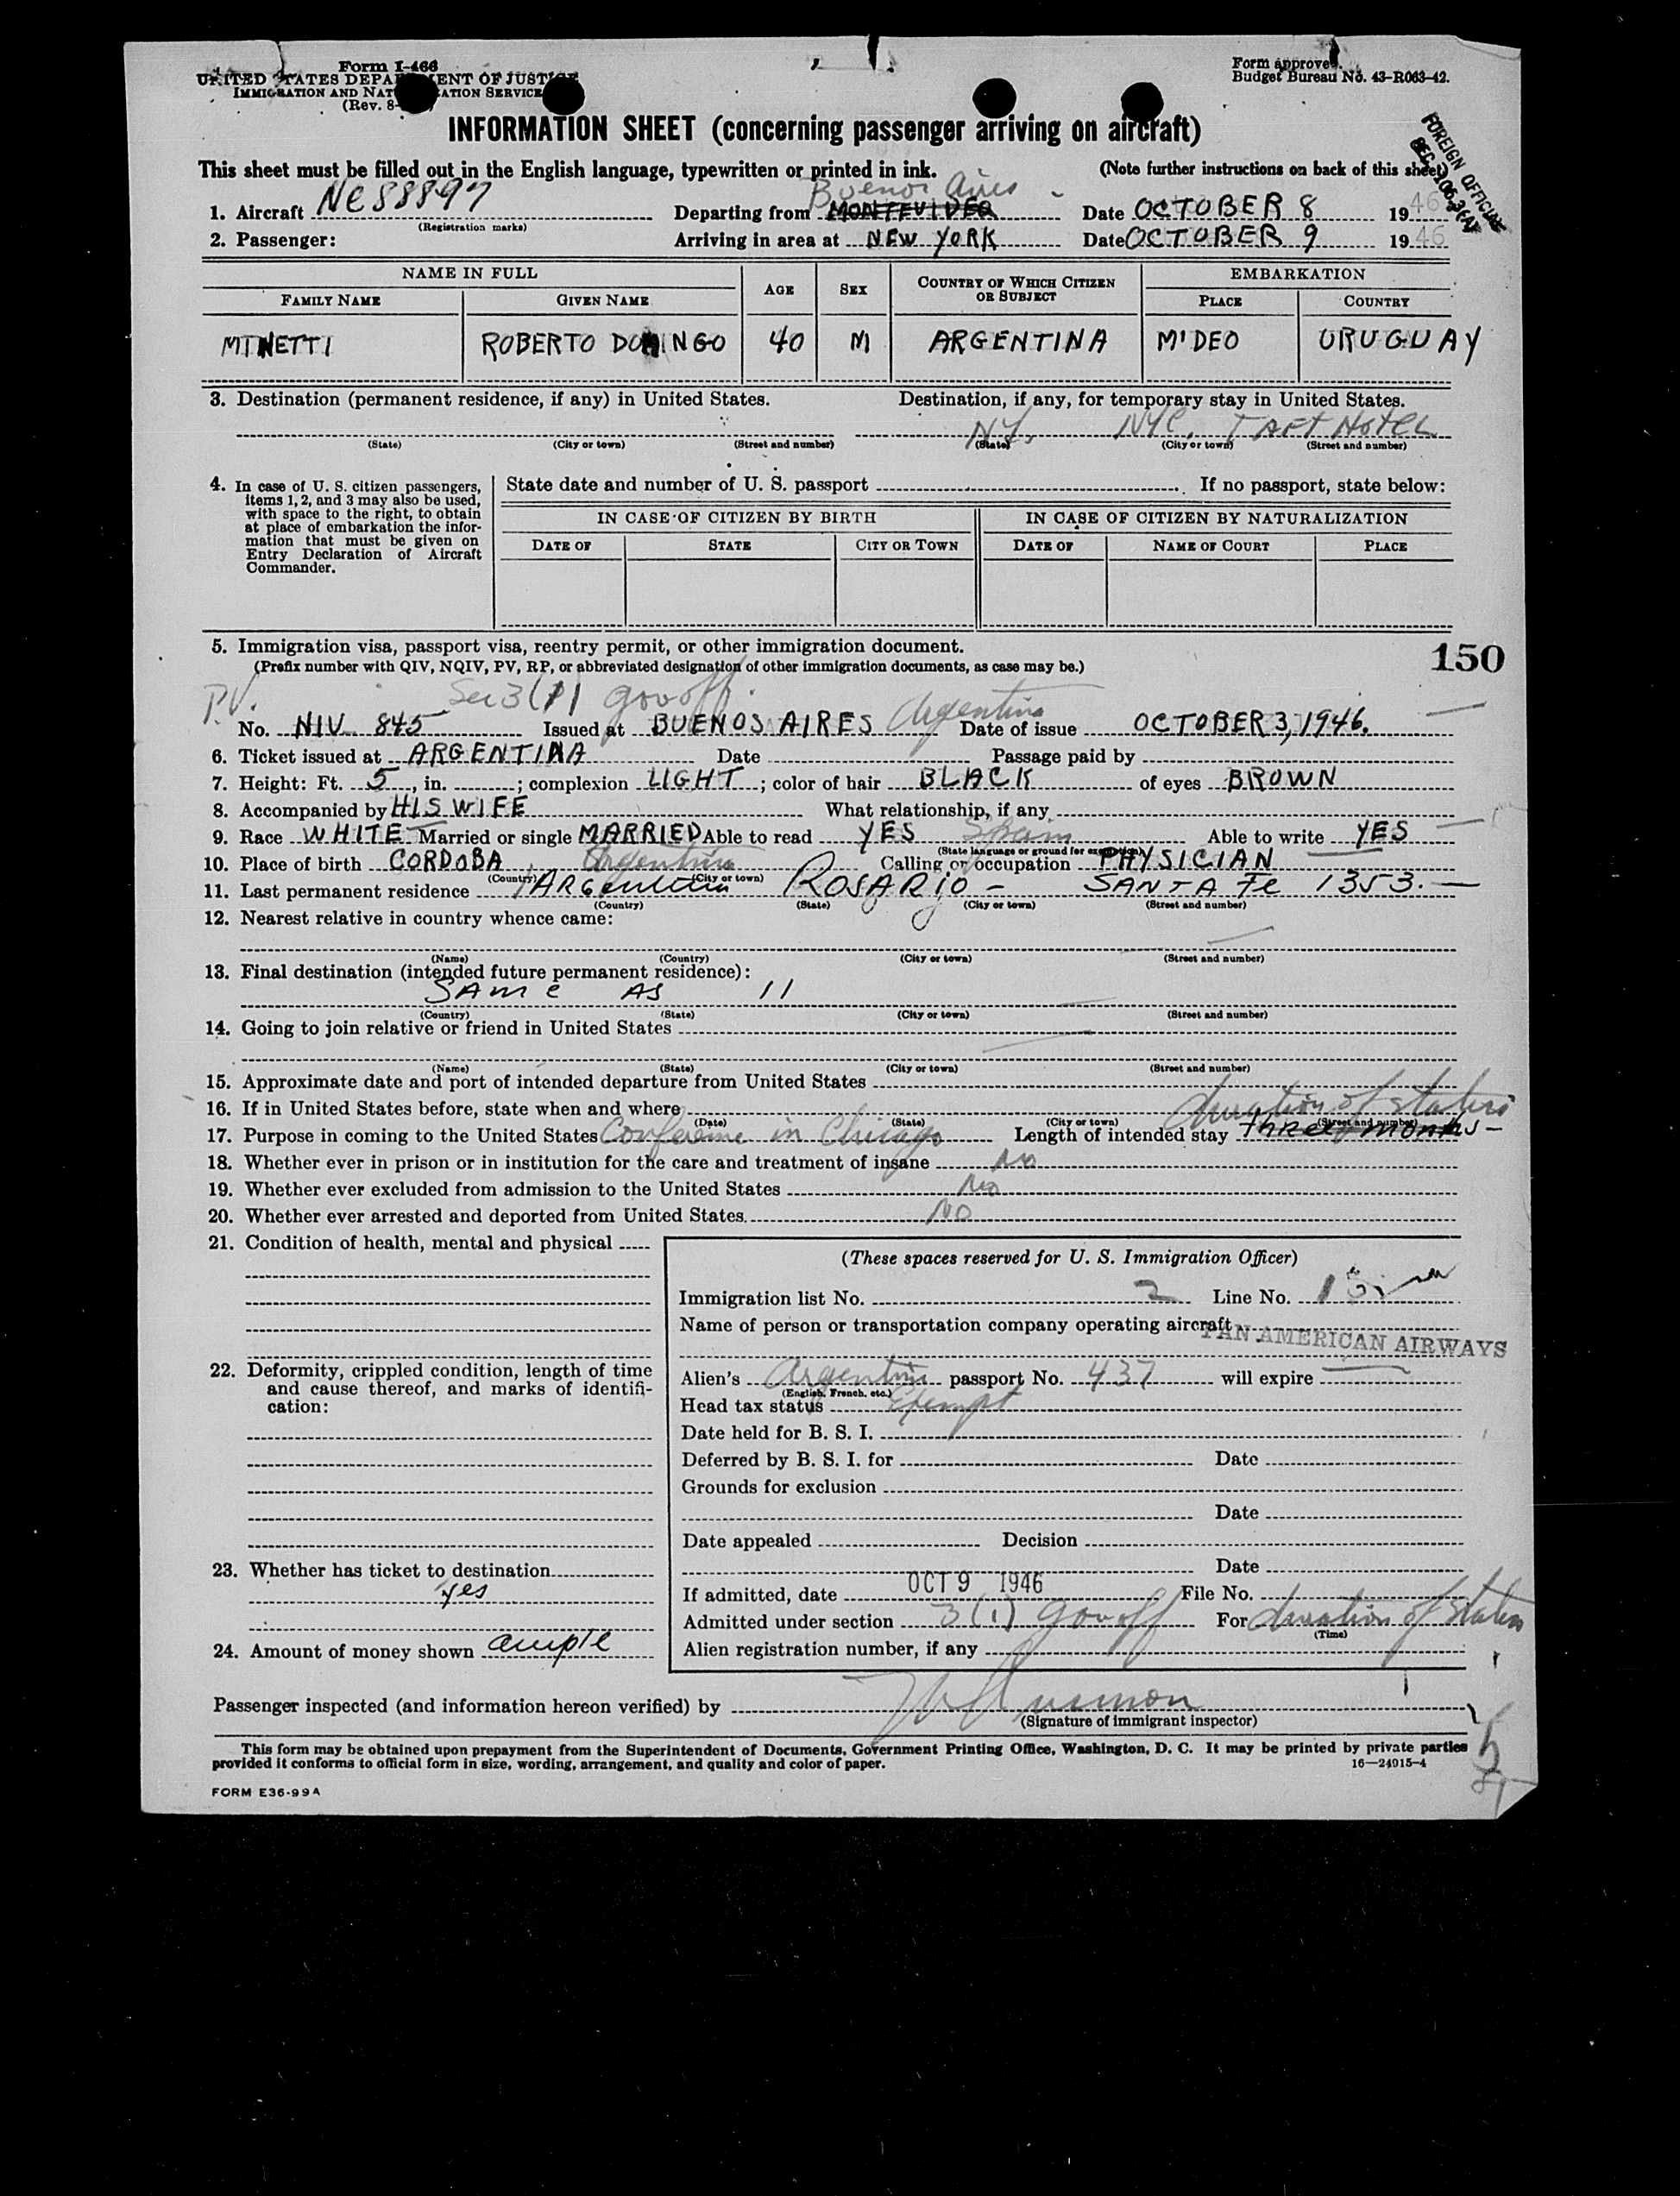 Form I-466
UNITED STATES DEPARTMENT OF JUSTICE
IMMIGRATION AND NATURALIZATION SERVICE
(Rev. 8-
Form approved.
Budget Bureau No. 43-R063-42.
INFORMATION SHEET (concerning passenger arriving on aircraft)
FOREIGN OFFICIAL
This sheet must be filled out in the English language, typewritten or printed in ink. (Note further instructions on back of this sheet)
Buenos Aires
1. Aircraft NC88897 Departing from MONTEVIDEO Date OCTOBER 8 1946
(Registration marks)
2. Passenger: Arriving in area at NEW YORK Date OCTOBER 9 1946
NAME IN FULL AGE SEX COUNTRY OF WHICH CITIZEN OR SUBJECT EMBARKATION
FAMILY NAME GIVEN NAME PLACE COUNTRY
MINETTI ROBERTO DOMINGO 40 M ARGENTINA M'DEO URUGUAY
3. Destination (permanent residence, if any) in United States. Destination, if any, for temporary stay in United States.
NY, NYC, TAFT HOTEL
(State) (City or town) (Street and number) (State) (City or town) (Street and number)
4. In case of U. S. citizen passengers, items 1, 2, and 3 may also be used, with space to the right, to obtain at place of embarkation the information that must be given on Entry Declaration of Aircraft Commander.
State date and number of U. S. passport If no passport, state below:
IN CASE OF CITIZEN BY BIRTH IN CASE OF CITIZEN BY NATURALIZATION
DATE OF STATE CITY OR TOWN DATE OF NAME OF COURT PLACE
5. Immigration visa, passport visa, reentry permit, or other immigration document.
150
(Prefix number with QIV, NQIV, PV, RP, or abbreviated designation of other immigration documents, as case may be.)
P.V. Sec 3(1) gov off.
No. NIV 845 Issued at BUENOS AIRES Argentina Date of issue OCTOBER 3, 1946.
6. Ticket issued at ARGENTINA Date Passage paid by
7. Height: Ft. 5, in. ; complexion LIGHT; color of hair BLACK of eyes BROWN
8. Accompanied by HIS WIFE What relationship, if any
9. Race WHITE Married or single MARRIED Able to read YES Spain Able to write YES
(State language or ground for exemption)
10. Place of birth CORDOBA Argentina Calling or occupation PHYSICIAN
(Country) (City or town)
11. Last permanent residence ARGENTINA ROSARIO - SANTA Fe 1353.-
(Country) (State) (City or town) (Street and number)
12. Nearest relative in country whence came:
(Name) (Country) (City or town) (Street and number)
13. Final destination (intended future permanent residence):
SAME AS 11
(Country) (State) (City or town) (Street and number)
14. Going to join relative or friend in United States
(Name) (State) (City or town) (Street and number)
15. Approximate date and port of intended departure from United States
16. If in United States before, state when and where
(Date) (State) (City or town) (Street and number)
duration of status
17. Purpose in coming to the United States Conference in Chicago Length of intended stay three months-
18. Whether ever in prison or in institution for the care and treatment of insane No
19. Whether ever excluded from admission to the United States No
20. Whether ever arrested and deported from United States No
21. Condition of health, mental and physical
(These spaces reserved for U. S. Immigration Officer)
Immigration list No. 2 Line No.
Name of person or transportation company operating aircraft
PAN AMERICAN AIRWAYS
22. Deformity, crippled condition, length of time and cause thereof, and marks of identification:
Alien's Argentine passport No. 437 will expire
(English, French, etc.)
Head tax status Exempt
Date held for B. S. I.
Deferred by B. S. I. for Date
Grounds for exclusion
Date
Date appealed Decision
Date
23. Whether has ticket to destination
yes
If admitted, date OCT 9 1946 File No.
Admitted under section 3(1) gov off For duration of status
(Time)
24. Amount of money shown ample
Alien registration number, if any
Passenger inspected (and information hereon verified) by
(Signature of immigrant inspector)
This form may be obtained upon prepayment from the Superintendent of Documents, Government Printing Office, Washington, D. C. It may be printed by private parties
provided it conforms to official form in size, wording, arrangement, and quality and color of paper. 16—24915-4
FORM E36-99A